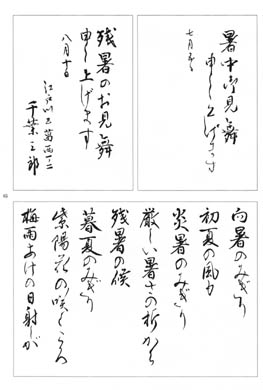 暑中御見舞
申し上げます
七月
残暑のお見舞
申し上げます
八月十日
江戸川区葛西一ノ二
千葉三郎
向暑のみぎり
初夏の風も
炎暑のみぎり
厳しい暑さの折から
残暑の候
暮夏のみぎり
紫陽花の咲くころ
梅雨あけの日射しが